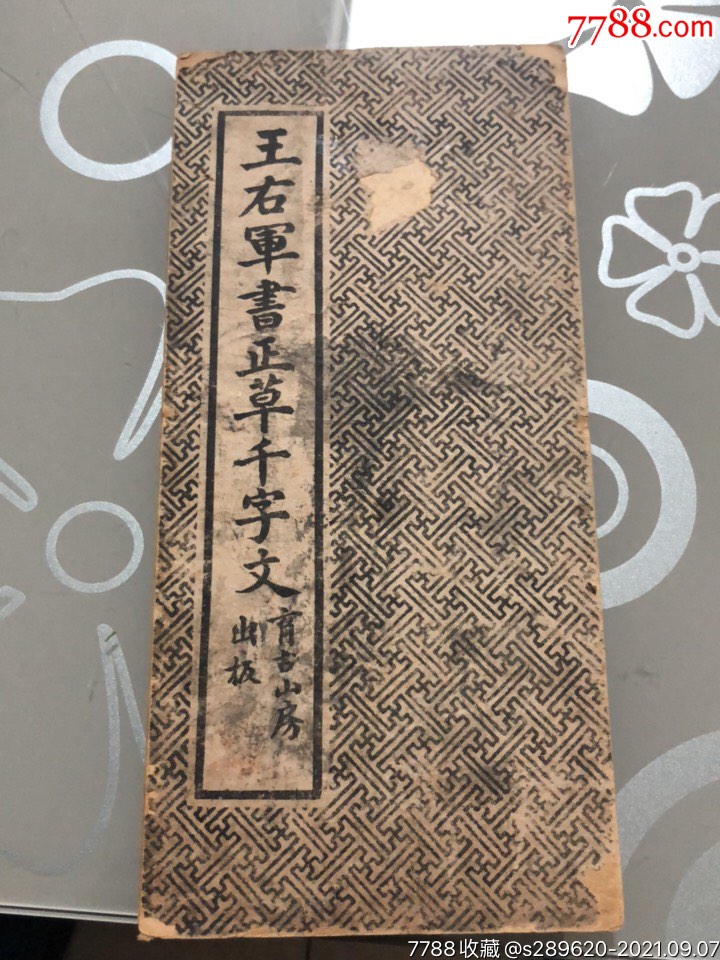 7788.com
王右軍書正草千字文
育古山房
出板
7788收藏@s289620-2021.09.07